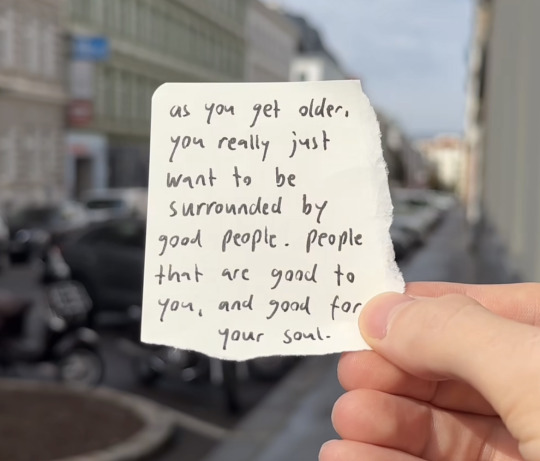 as you get older,
you really just
want to be
surrounded by
good people. people
that are good to
you, and good for
your soul.